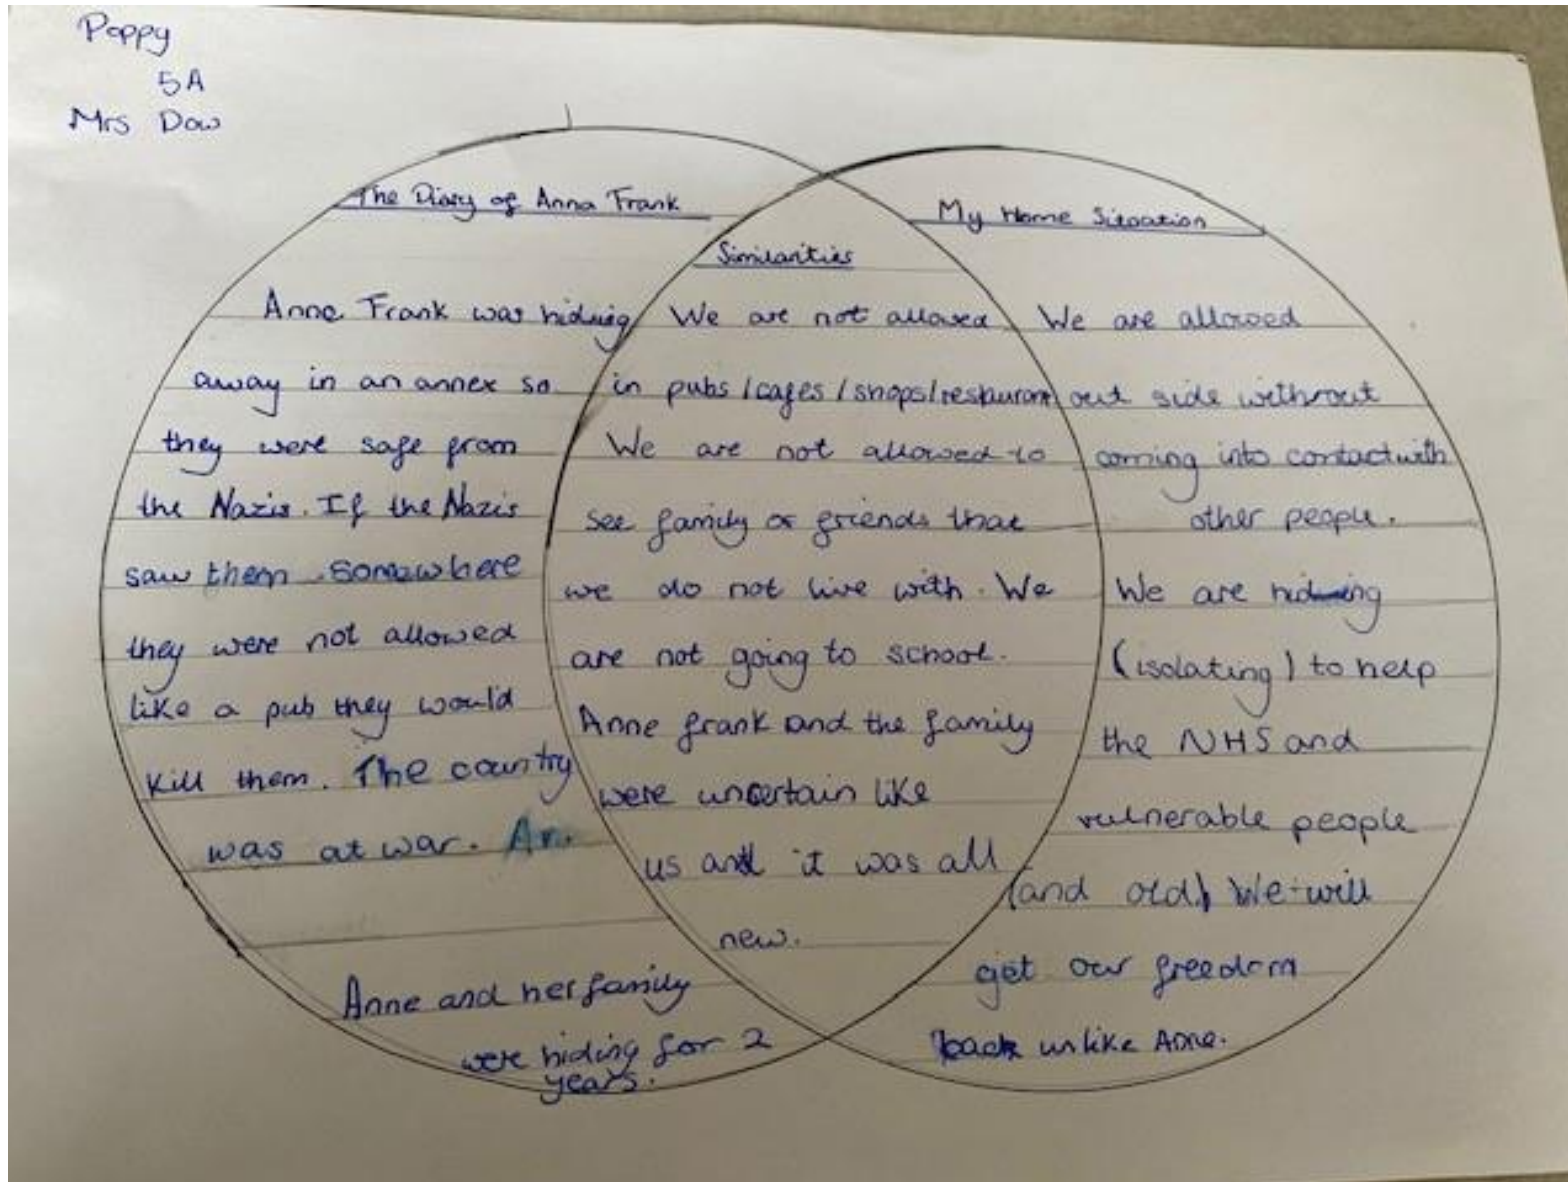 Poppy
5A
Mrs Dow
The Diary of Anna Frank
Anne Frank was hiding
away in an annex so
they were safe from
the Nazis. If the Nazis
saw them somewhere
they were not allowed
like a pub they would
kill them. The country
was at war. An.
Anne and her family
were hiding for 2
years.
Similarities
We are not allowed
in pubs/cafes/shops/restaurant
We are not allowed to
see family or friends that
we do not live with. We
are not going to school.
Anne frank and the family
were uncertain like
us and it was all
new.
My Home Situation
We are allowed
out side without
coming into contact with
other people.
We are hiding
(isolating) to help
the NHS and
vulnerable people
(and old) We will
get our freedom
back unlike Anne.